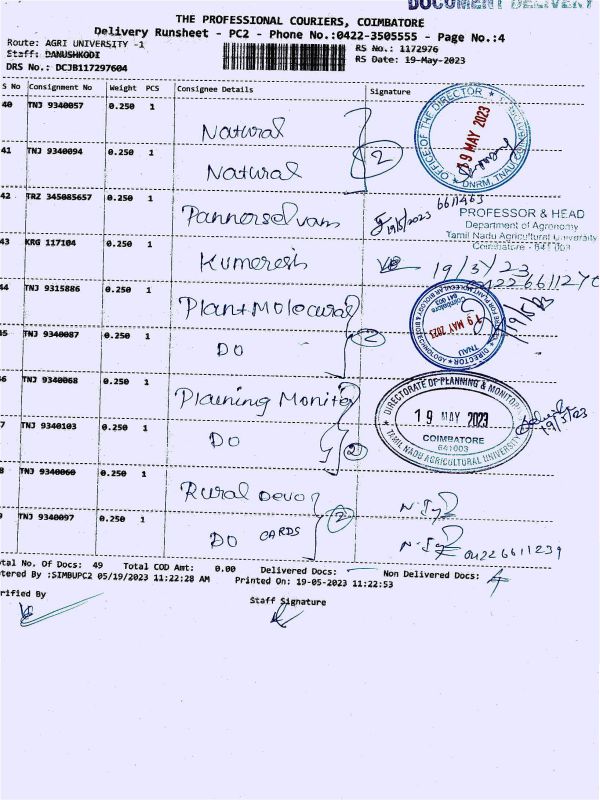 DOCUMENT DELIVERY
THE PROFESSIONAL COURIERS, COIMBATORE
Delivery Runsheet - PC2 - Phone No.:0422-3505555 - Page No.:4
Route: AGRI UNIVERSITY -1
RS No.: 1172976
Staff: DANUSHKODI
RS Date: 19-May-2023
DRS No.: DCJB117297604
S No Consignment No Weight PCS Consignee Details Signature
40 TNJ 9340057 0.250 1 Natural
OFFICE OF THE DIRECTOR
19 MAY 2023
DNRM, TNAU
41 TNJ 9340094 0.250 1 Natural
2
42 TRZ 345085657 0.250 1 Pannerselvam
19/5/2023
6611463
PROFESSOR & HEAD
Department of Agronomy
Tamil Nadu Agricultural University
Coimbatore - 641 003
43 KRG 117104 0.250 1 Kumeresh
19/5/23
04226611270
44 TNJ 9315886 0.250 1 Plant Molecural
Coimbatore
641 003
19 MAY 2023
TNAU
19/5/23
5 TNJ 9340087 0.250 1 DO
2
6 TNJ 9340068 0.250 1 Planing Moniter
DIRECTORATE OF PLANNING & MONITOR
19 MAY 2023
COIMBATORE
641003
TAMIL NADU AGRICULTURAL UNIVERSITY
19/5/23
7 TNJ 9340103 0.250 1 DO
2
8 TNJ 9340060 0.250 1 Rural Devo
9 TNJ 9340097 0.250 1 DO CARDS
2
04226611239
otal No. Of Docs: 49 Total COD Amt: 0.00 Delivered Docs: Non Delivered Docs:
tered By :SIMBUPC2 05/19/2023 11:22:28 AM Printed On: 19-05-2023 11:22:53
rified By
Staff Signature